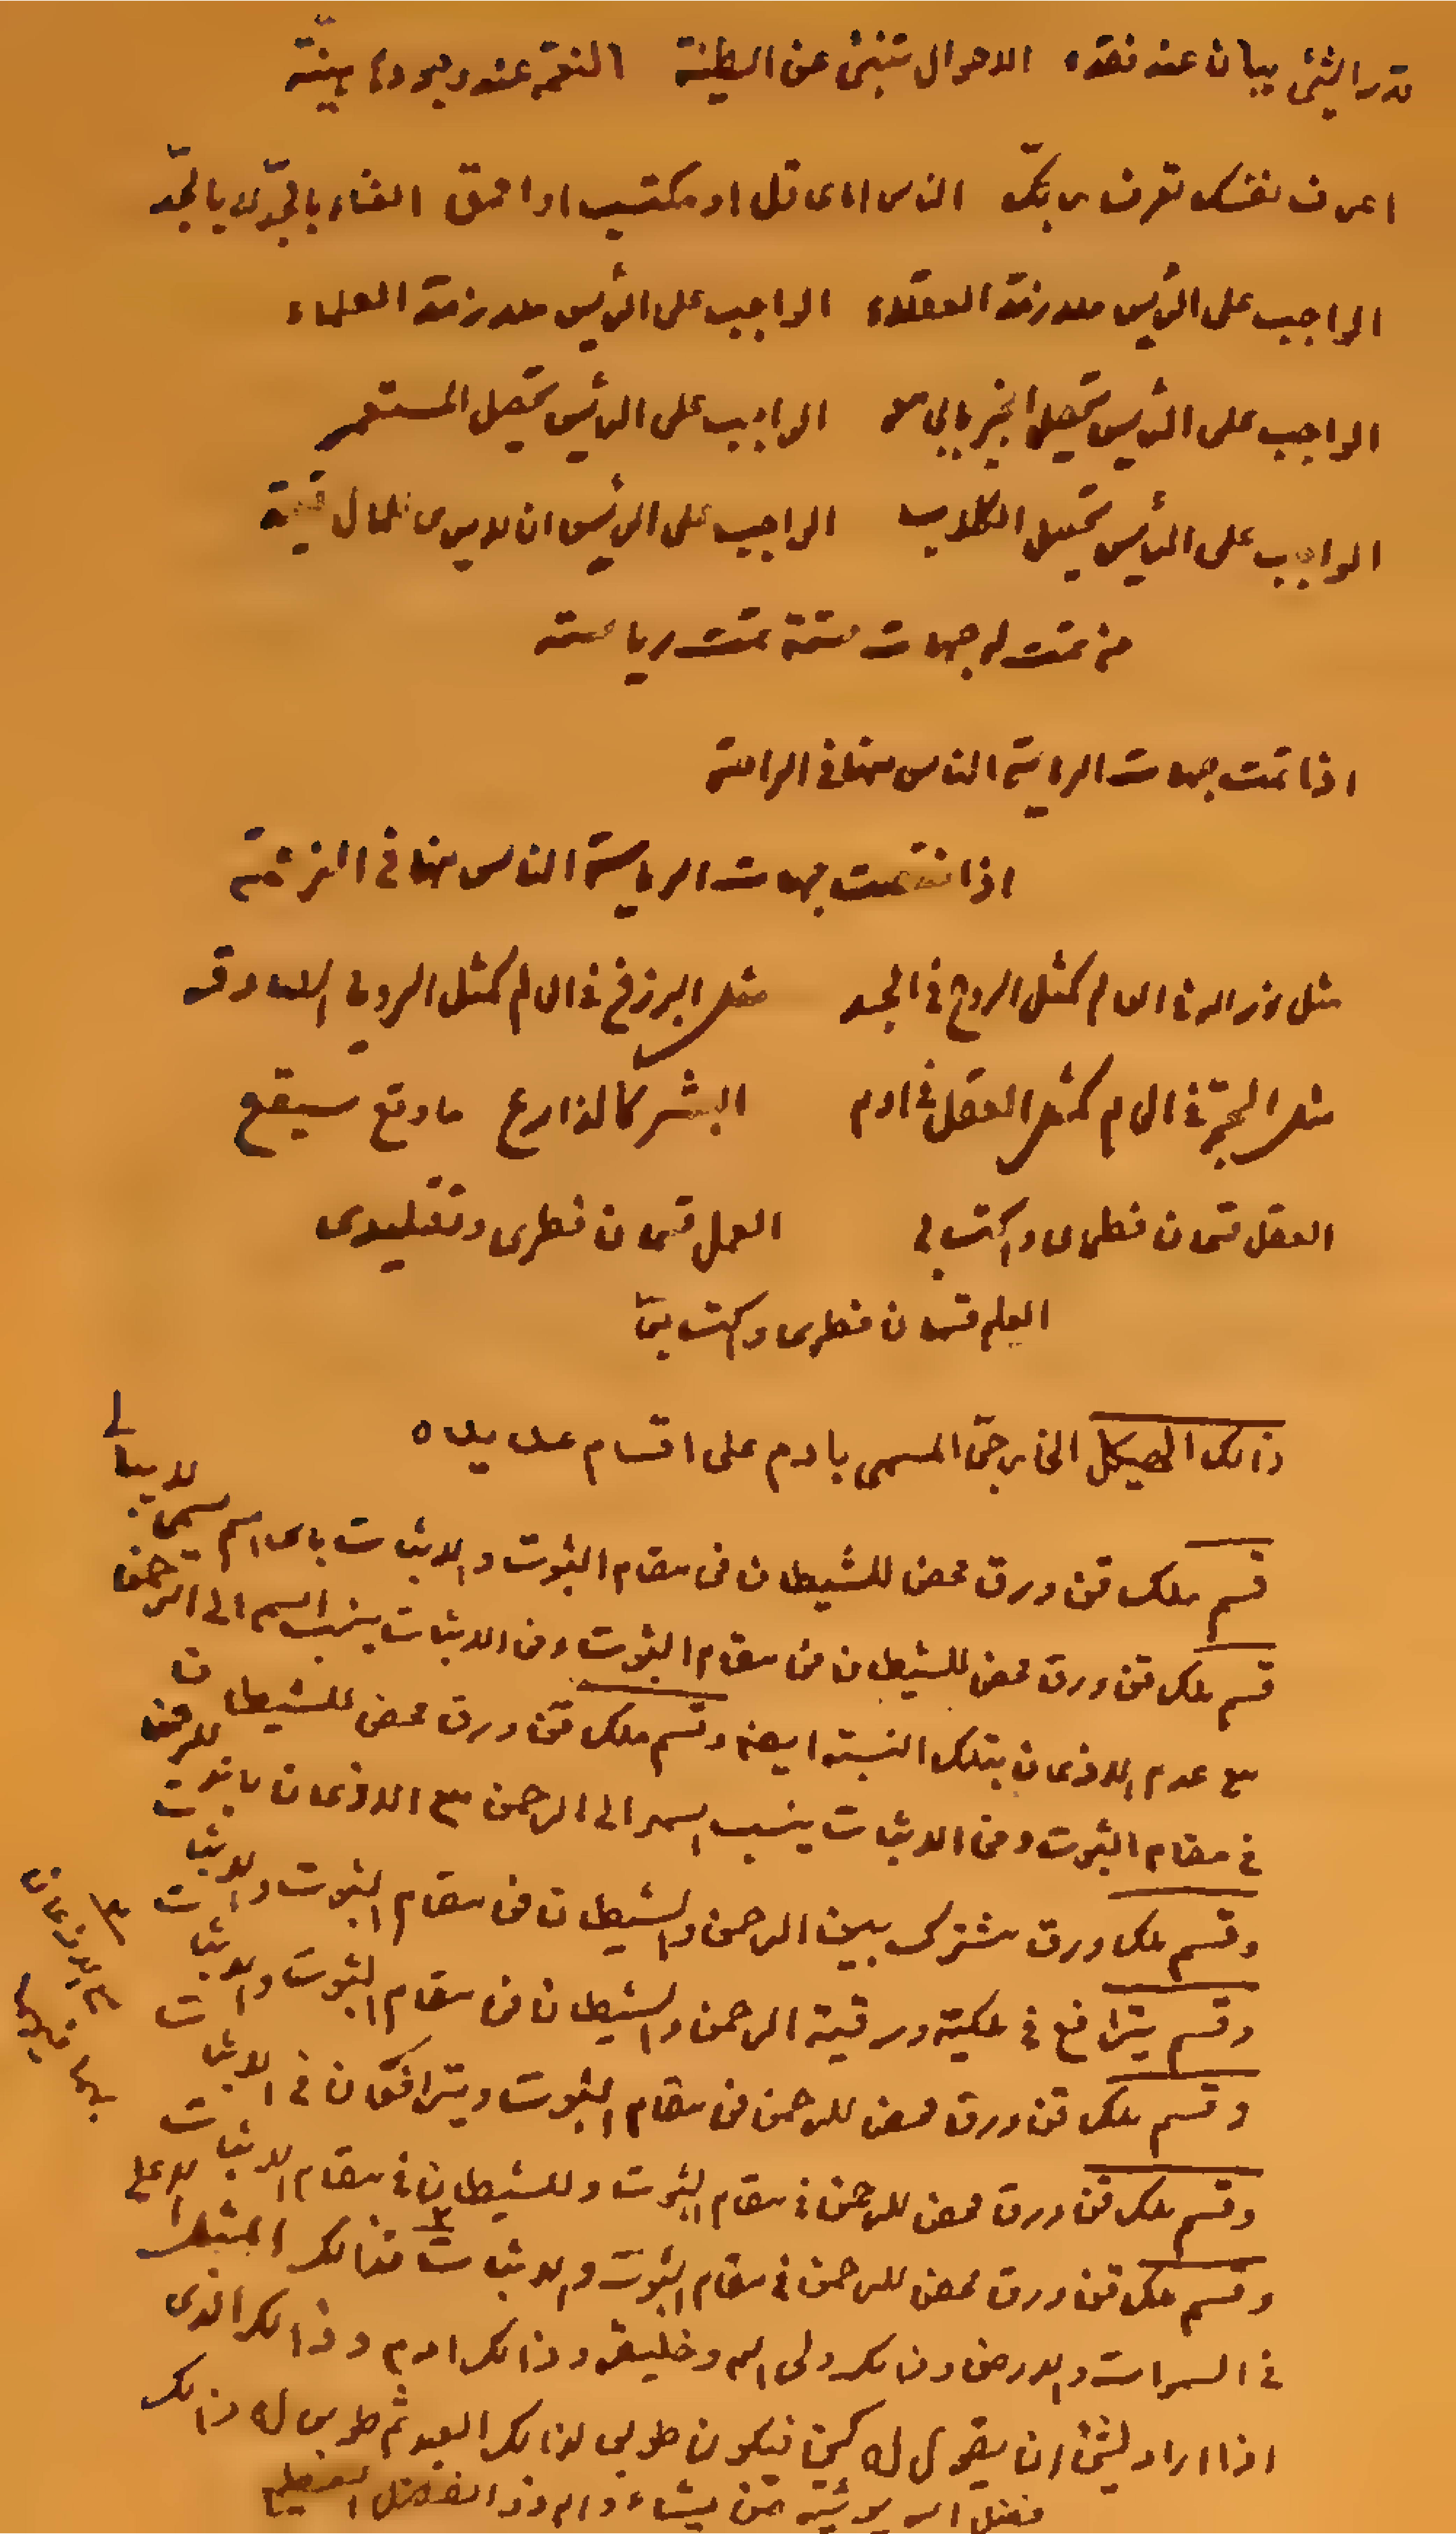 قدر الشئ يبان عند فقده الاحوال تنبئ عن الطينة النعمة عند وجودها هيّنة
اعرف نفسك تعرف ربك الناس اما عاقل او مكتسب او احمق الغناء بالجدّ لا بالجدّ
الواجب على الرئيس ملازمة العقلاء الواجب على الرئيس ملازمة العلماء
الواجب على الرئيس تحصيل الواجب على الرئيس تحصيل
الواجب على الرئيس تحصيل الواجب على الرئيس ان لا يرى للمال قيمة
من تمت له جهات ستة تمت رياسته
اذا تمت جهات الرياسة الناس منها في الراحة
اذا جهات الرياسة الناس منها في
مثل نور الله في العالم كمثل الروح في الجسد مثل البرزخ في العالم كمثل
مثل في العالم كمثل العقل في ادم البشر كالذارع ما وقع سيقع
العقل قسمان فطرى واكتسابي العمل قسمان فطرى وتقليدى
العلم قسمان فطرى واكتسابيّ
ذالك الهيكل الخارجيّ المسمى بادم على اقسام عديده
قسم ملك قن ورق محض للشيطان فى مقام الثبوت والاثبات باى اسم يسمى لا يبالى
قسم ملك قن ورق محض للشيطان فى مقام الثبوت وفى الاثبات ينسب اسمه الى الرحمن
مع عدم الاذعان بتلك النسبة ايضا وقسم ملك قن ورق محض للشيطان
في مقام الثبوت وفى الاثبات ينسب اسمه الى الرحمن مع الاذعان للرحمن
وقسم ملك ورق مشترك بين الرحمن والشيطان فى مقام الثبوت والاثبات
وقسم يترافع في ملكية ورقية الرحمن والشيطان فى مقام الثبوت والاثبات
وقسم ملك قن ورق محض للرحمن فى مقام الثبوت ويترافعان في الاثبات
وقسم ملك قن ورق محض للرحمن في مقام الثبوت وللشيطان في مقام الاثبات
وقسم ملك قن ورق محض للرحمن في مقام الثبوت والاثبات فذالك المثل الاعلى
في السموات والارض وذالك ولى الله وخليفته وذالك ادم وذالك الذى
اذا اراد لشئ ان يقول له كن فيكون طوبى لذالك العبد ثم طوبى له ذالك
فضل الله يؤتيه من يشاء والله ذو الفضل العظيم